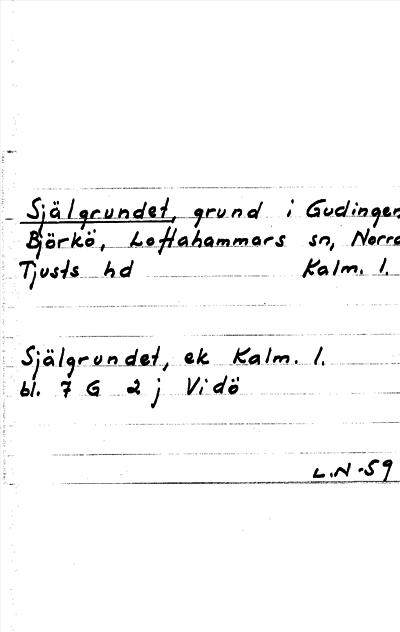 Själgrundet, grund i Gudingen
Björkö, Loftahammars sn, Norra
Tjusts hd Kalm. l.
Själgrundet, ek Kalm. l.
bl. 7 G 2 j Vidö
L.N-59